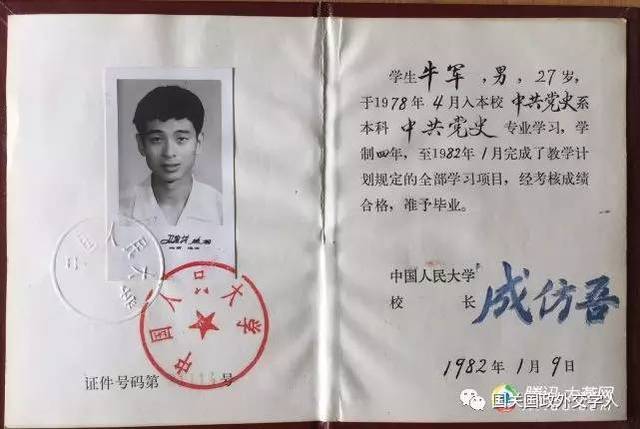 中国人民大学
证件号码第 号
学生牛军，男，27岁，
于1978年4月入本校中共党史系
本科 中共党史 专业学习，学
制四年，至1982年1月完成了教学计
划规定的全部学习项目，经考核成绩
合格，准予毕业。
中国人民大学
校 长 成仿吾
1982年1月9日
腾讯·大燕网
国关国政外交学人